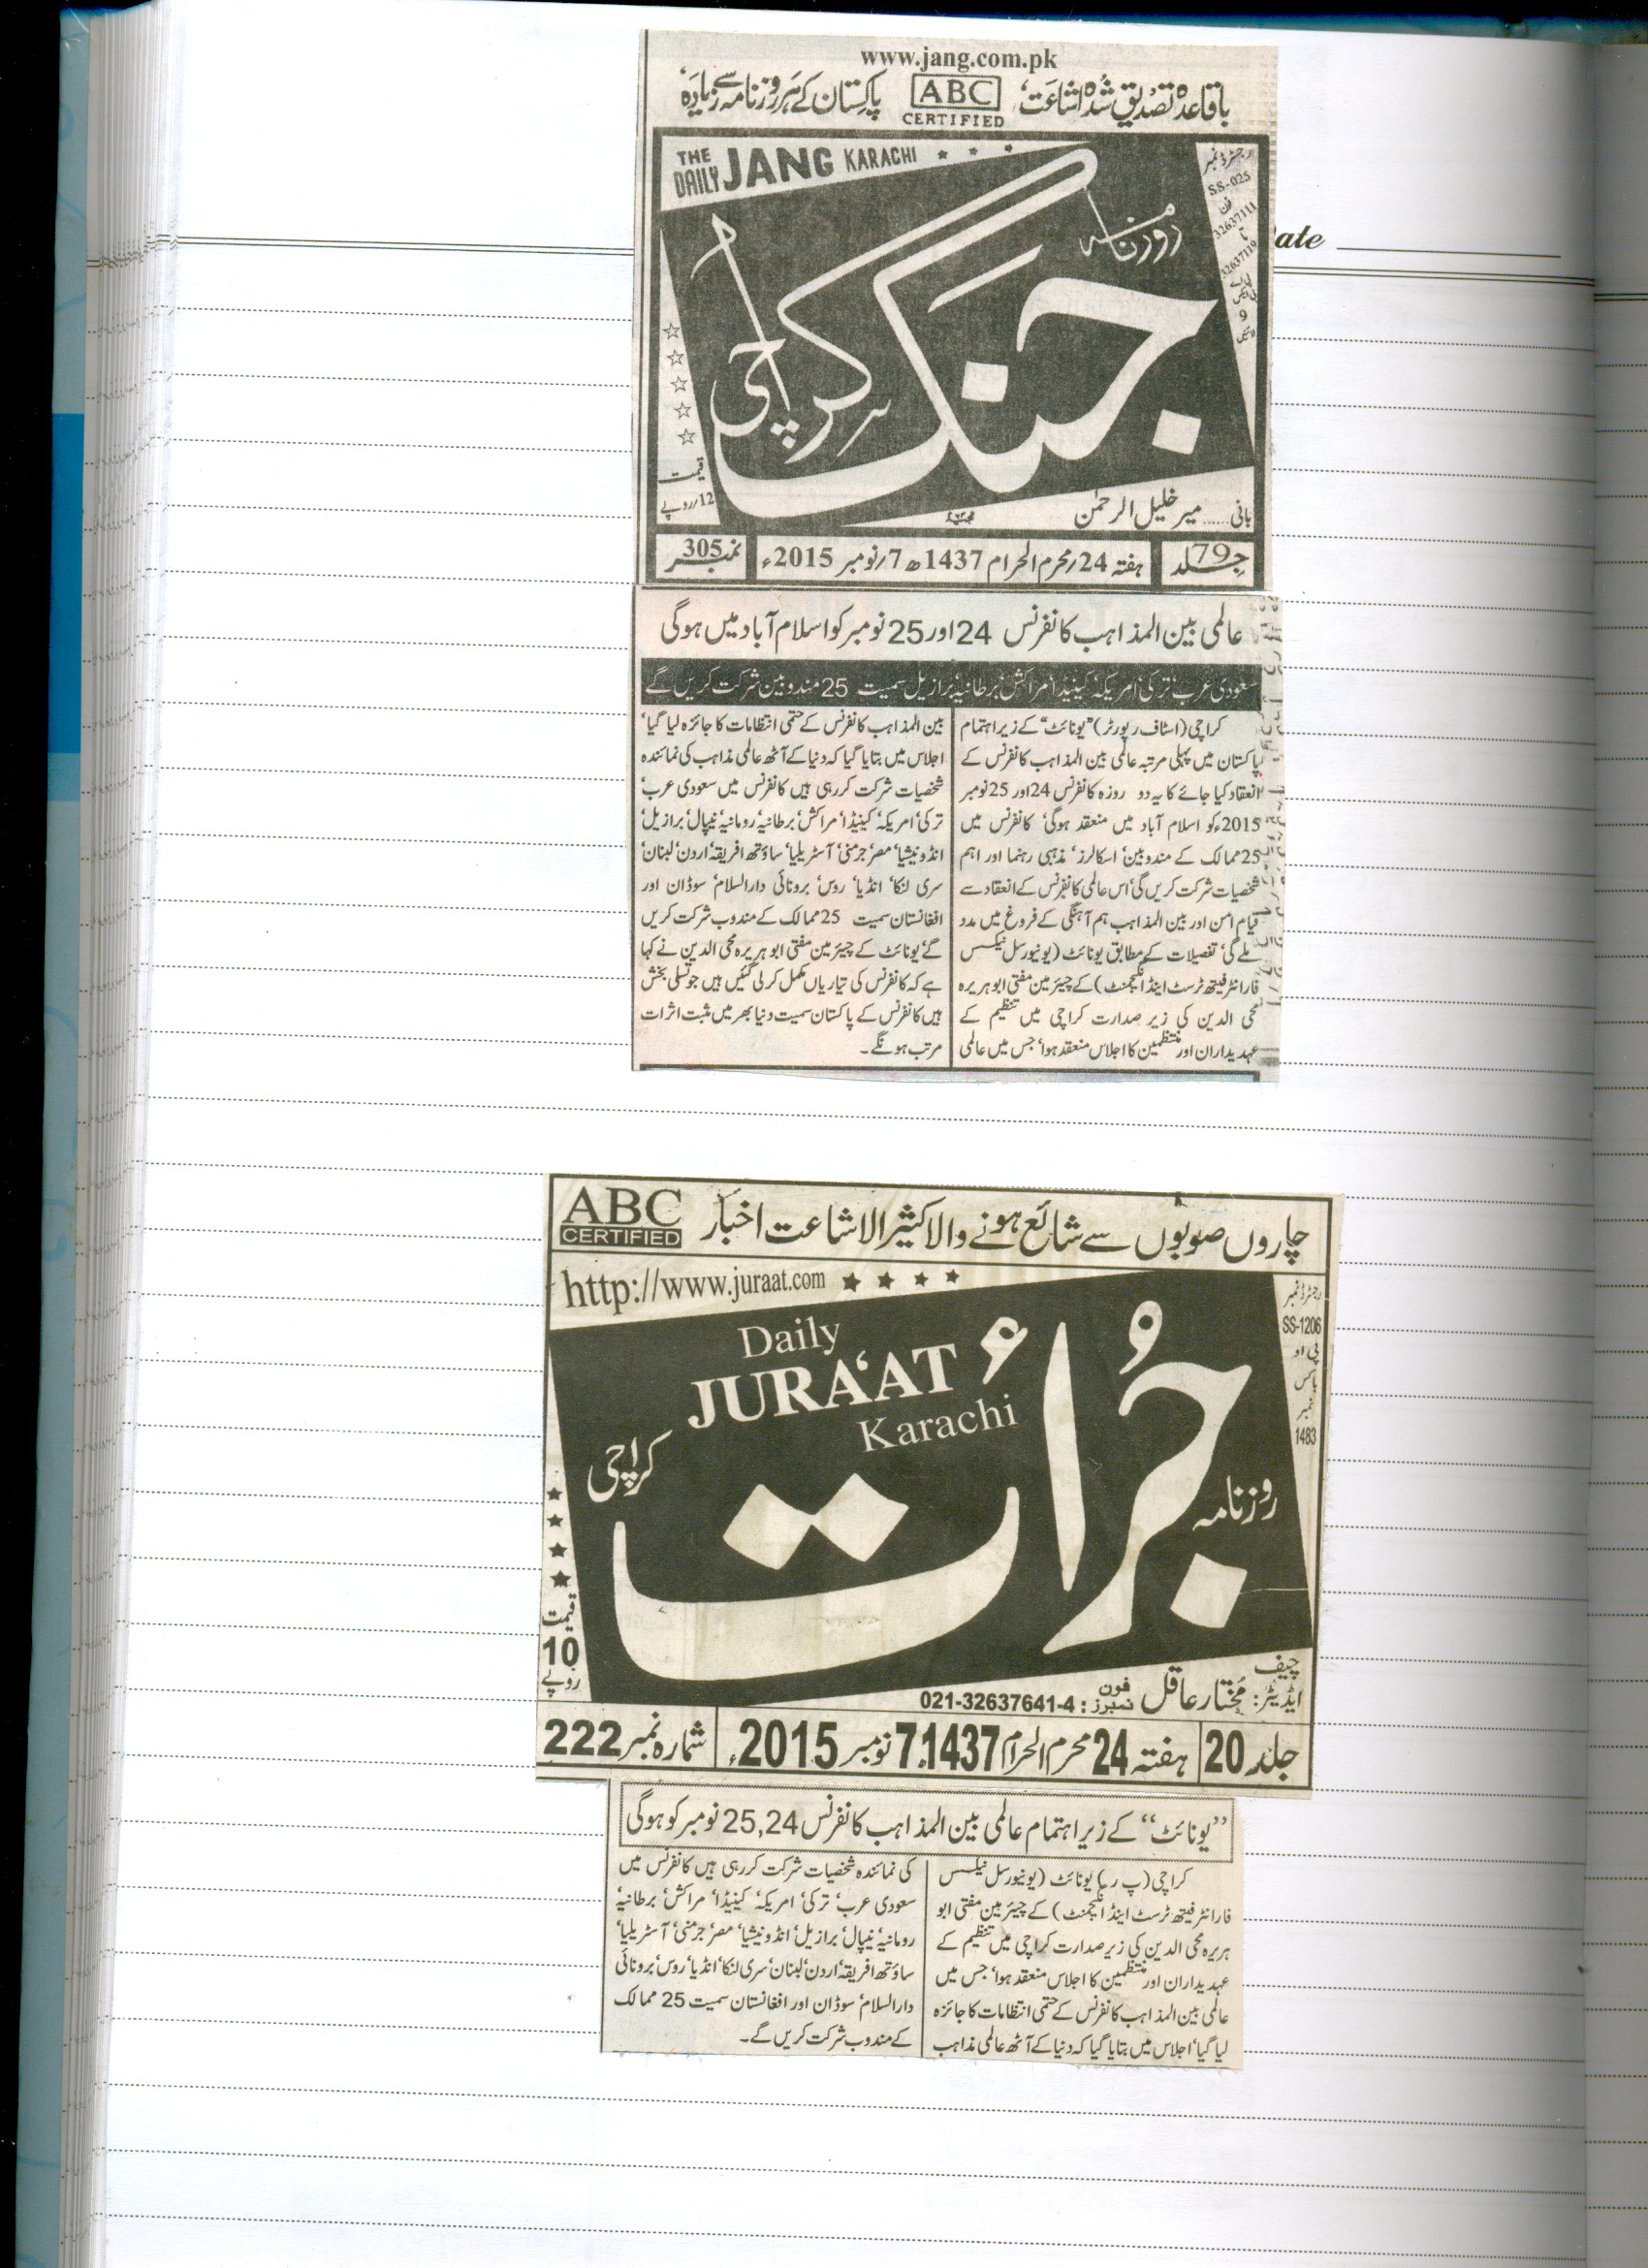 www.jang.com.pk
باقاعدہ تصدیق شدہ اشاعت، ABC CERTIFIED پاکستان کے ہر روزنامہ سے زیادہ
THE DAILY JANG KARACHI
رجسٹرڈ نمبر
SS-025
فون
32637111
تا
32637119
پی اے بی ایکس
9
لائنیں
روزنامہ
جنگ
کراچی
قیمت
12/روپے
بانی...... میر خلیل الرحمٰن
جلد 79
ہفتہ 24/محرم الحرام 1437ھ 7/نومبر 2015ء
نمبر 305
عالمی بین المذاہب کانفرنس 24 اور 25 نومبر کو اسلام آباد میں ہوگی
سعودی عرب‘ ترکی‘ امریکہ‘ کینیڈا‘ مراکش‘ برطانیہ‘ برازیل سمیت 25 مندوبین شرکت کریں گے
کراچی (اسٹاف رپورٹر) ”یونائٹ“ کے زیر اہتمام
پاکستان میں پہلی مرتبہ عالمی بین المذاہب کانفرنس کے
انعقاد کیا جائے گا یہ دو روزہ کانفرنس 24 اور 25 نومبر
2015ء کو اسلام آباد میں منعقد ہوگی‘ کانفرنس میں
25 ممالک کے مندوبین‘ اسکالرز‘ مذہبی رہنما اور اہم
شخصیات شرکت کریں گی‘ اس عالمی کانفرنس کے انعقاد سے
قیام امن اور بین المذاہب ہم آہنگی کے فروغ میں مدد
ملے گی‘ تفصیلات کے مطابق یونائٹ (یونیورسل نیکسس
فار انٹرفیتھ ٹرسٹ اینڈ انگیجمنٹ) کے چیئرمین مفتی ابوہریرہ
محی الدین کی زیر صدارت کراچی میں تنظیم کے
عہدیداران اور منتظمین کا اجلاس منعقد ہوا‘ جس میں عالمی
بین المذاہب کانفرنس کے حتمی انتظامات کا جائزہ لیا گیا‘
اجلاس میں بتایا گیا کہ دنیا کے آٹھ عالمی مذاہب کی نمائندہ
شخصیات شرکت کررہی ہیں کانفرنس میں سعودی عرب‘
ترکی‘ امریکہ‘ کینیڈا‘ مراکش‘ برطانیہ‘ رومانیہ‘ نیپال‘ برازیل‘
انڈونیشیا‘ مصر‘ جرمنی‘ آسٹریلیا‘ ساؤتھ افریقہ‘ اردن‘ لبنان‘
سری لنکا‘ انڈیا‘ روس‘ برونائی دارالسلام‘ سوڈان اور
افغانستان سمیت 25 ممالک کے مندوب شرکت کریں
گے‘ یونائٹ کے چیئرمین مفتی ابوہریرہ محی الدین نے کہا
ہے کہ کانفرنس کی تیاریاں مکمل کرلی گئیں ہیں جو تسلی بخش
ہیں کانفرنس کے پاکستان سمیت دنیا بھر میں مثبت اثرات
مرتب ہونگے۔
Date
ABC CERTIFIED چاروں صوبوں سے شائع ہونے والا کثیر الاشاعت اخبار
http://www.juraat.com
رجسٹرڈ نمبر
SS-1206
پی او
باکس
نمبر
1483
Daily
JURA‘AT
Karachi
جرأت
کراچی
روزنامہ
قیمت
10
روپے
چیف ایڈیٹر: مختار عاقل فون نمبرز: 021-32637641-4
جلد 20
ہفتہ 24 محرم الحرام 1437ھ 7 نومبر 2015ء
شمارہ نمبر 222
”یونائٹ“ کے زیر اہتمام عالمی بین المذاہب کانفرنس 24,25 نومبر کو ہوگی
کراچی (پ ر) یونائٹ (یونیورسل نیکسس
فار انٹرفیتھ ٹرسٹ اینڈ انگیجمنٹ) کے چیئرمین مفتی ابو
ہریرہ محی الدین کی زیر صدارت کراچی میں تنظیم کے
عہدیداران اور منتظمین کا اجلاس منعقد ہوا‘ جس میں
عالمی بین المذاہب کانفرنس کے حتمی انتظامات کا جائزہ
لیا گیا‘ اجلاس میں بتایا گیا کہ دنیا کے آٹھ عالمی مذاہب
کی نمائندہ شخصیات شرکت کررہی ہیں کانفرنس میں
سعودی عرب‘ ترکی‘ امریکہ‘ کینیڈا‘ مراکش‘ برطانیہ‘
رومانیہ‘ نیپال‘ برازیل‘ انڈونیشیا‘ مصر‘ جرمنی‘ آسٹریلیا‘
ساؤتھ افریقہ‘ اردن‘ لبنان‘ سری لنکا‘ انڈیا‘ روس‘ برونائی
دارالسلام‘ سوڈان اور افغانستان سمیت 25 ممالک
کے مندوب شرکت کریں گے۔